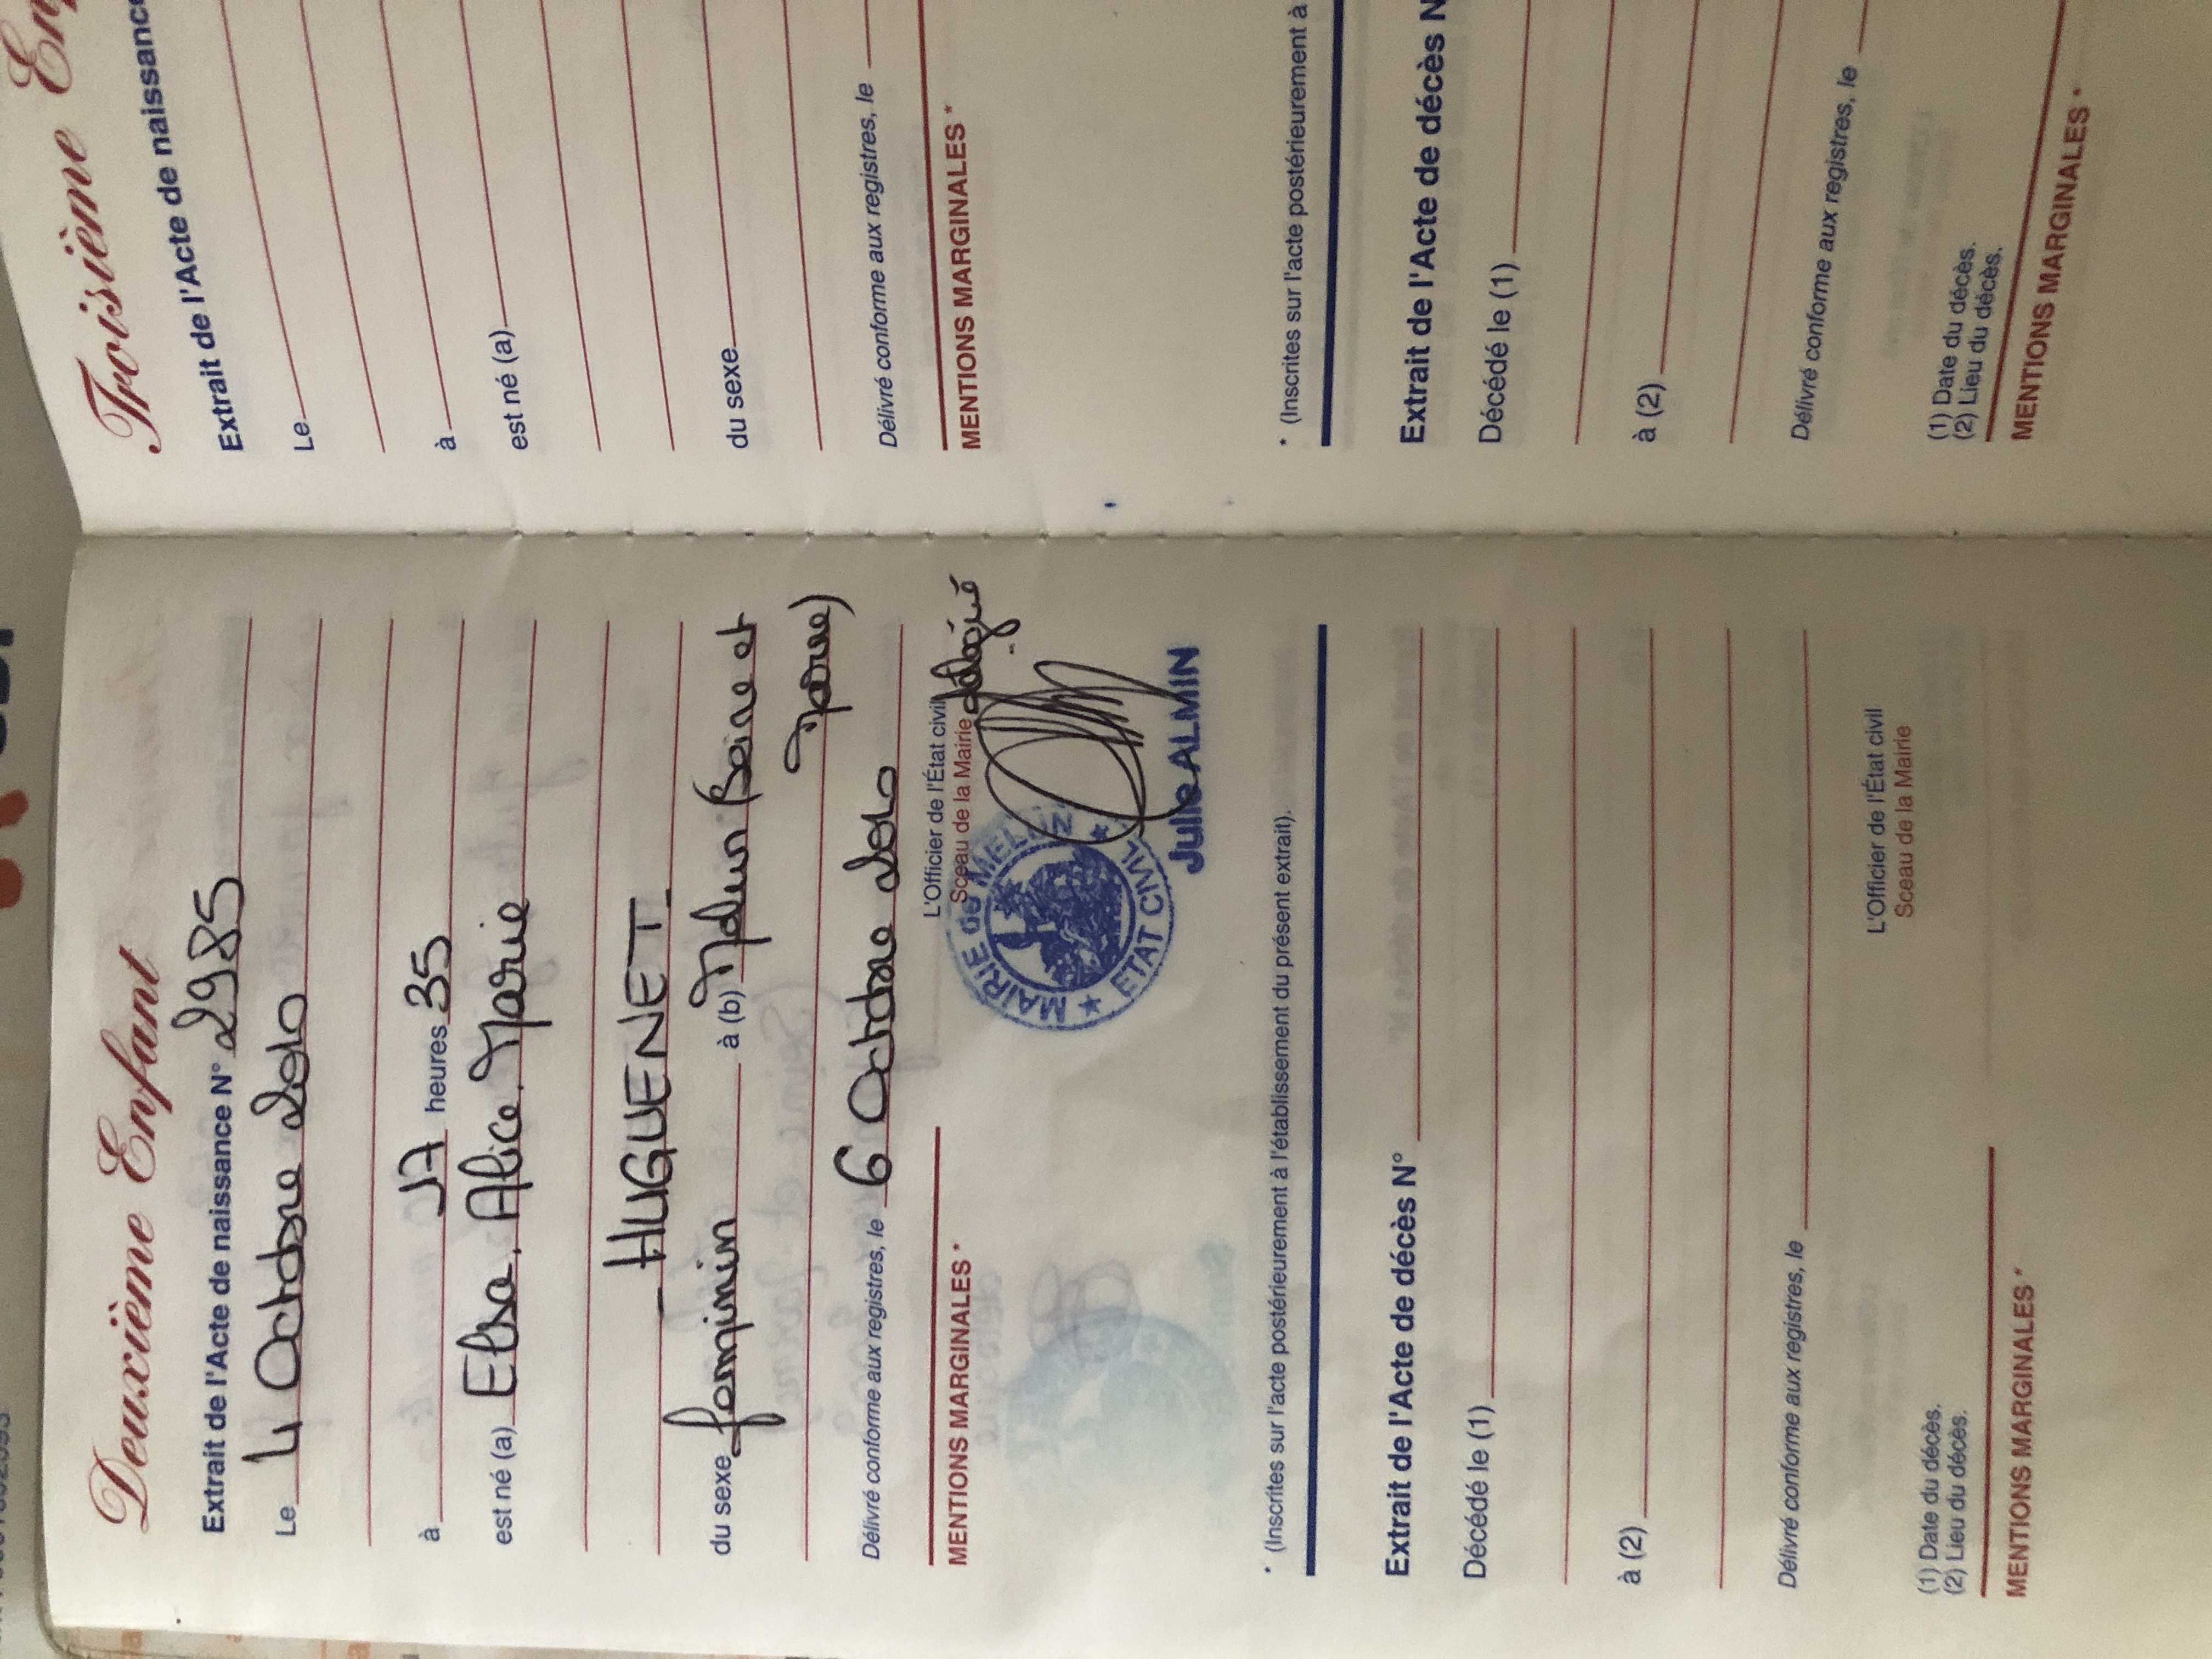 Deuxième Enfant
Extrait de l'Acte de naissance N° 2985
Le 4 Octobre 2010
à 17 heures 35
est né (a) Elsa, Alice, Marie
HUGUENET
du sexe féminin à (b) Melun (Seine et
Marne)
Délivré conforme aux registres, le 6 Octobre 2010
L'Officier de l'État civil délégué
Sceau de la Mairie
MENTIONS MARGINALES *
MAIRIE de MELUN
ETAT CIVIL
Julie ALMIN
* (Inscrites sur l'acte postérieurement à l'établissement du présent extrait).
Extrait de l'Acte de décès N°
Décédé le (1)
à (2)
Délivré conforme aux registres, le
L'Officier de l'État civil
Sceau de la Mairie
(1) Date du décès.
(2) Lieu du décès.
MENTIONS MARGINALES *
Troisième
Extrait de l'Acte de naissance
Le
à
est né (a)
du sexe
Délivré conforme aux registres, le
MENTIONS MARGINALES *
* (Inscrites sur l'acte postérieurement à
Extrait de l'Acte de décès N
Décédé le (1)
à (2)
Délivré conforme aux registres, le
(1) Date du décès.
(2) Lieu du décès.
MENTIONS MARGINALES *